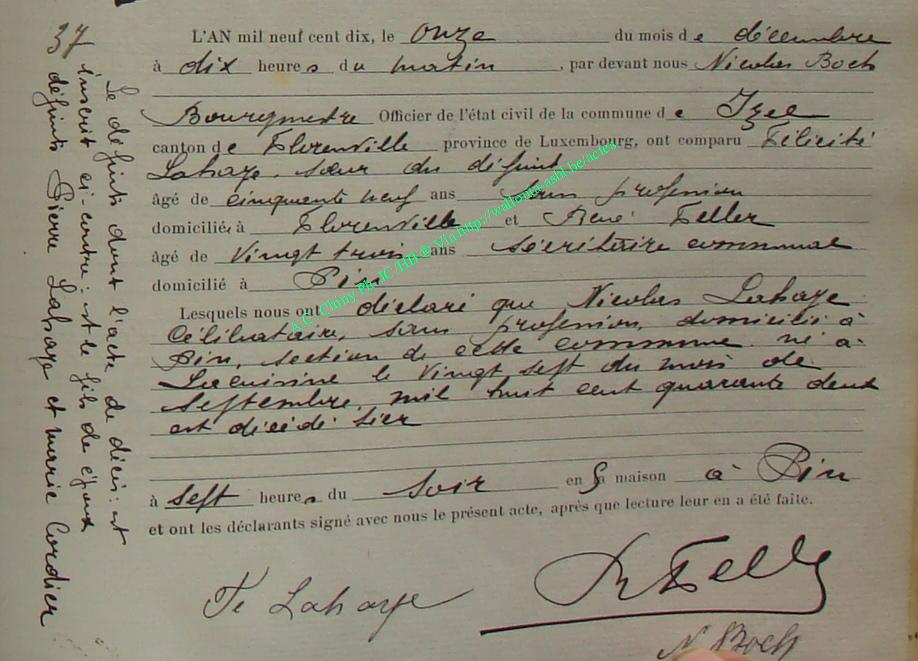 37
Le défunt dont l'acte de décès est
inscrit ci-contre : est le fils de époux
défunts Pierre Lahaye et marie Cordier
L'AN mil neuf cent dix, le onze du mois de décembre
à dix heures du matin, par devant nous Nicolas Boch
Bourgmestre Officier de l'état civil de la commune de Izel
canton de Florenville province de Luxembourg, ont comparu Félicité
Lahaye, sœur du défunt
âgé de cinquante neuf ans sans profession
domiciliée à Florenville et René Feller
âgé de Vingt trois ans Secrétaire communal
domicilié à Pin
Lesquels nous ont déclaré que Nicolas Lahaye
Célibataire, sans profession, domicilié à
Pin, section de cette commune né à
Lacuisine le Vingt sept du mois de
Septembre, mil huit cent quarante deux
est décédé hier
à Sept heures du Soir en Sa maison à Pin
et ont les déclarants signé avec nous le présent acte, après que lecture leur en a été faite.
Fe Lahaye
R Feller
N. Boch
A.C. Chiny Ph. JC/HB ® Via http://wallonia-asbl.be/actes